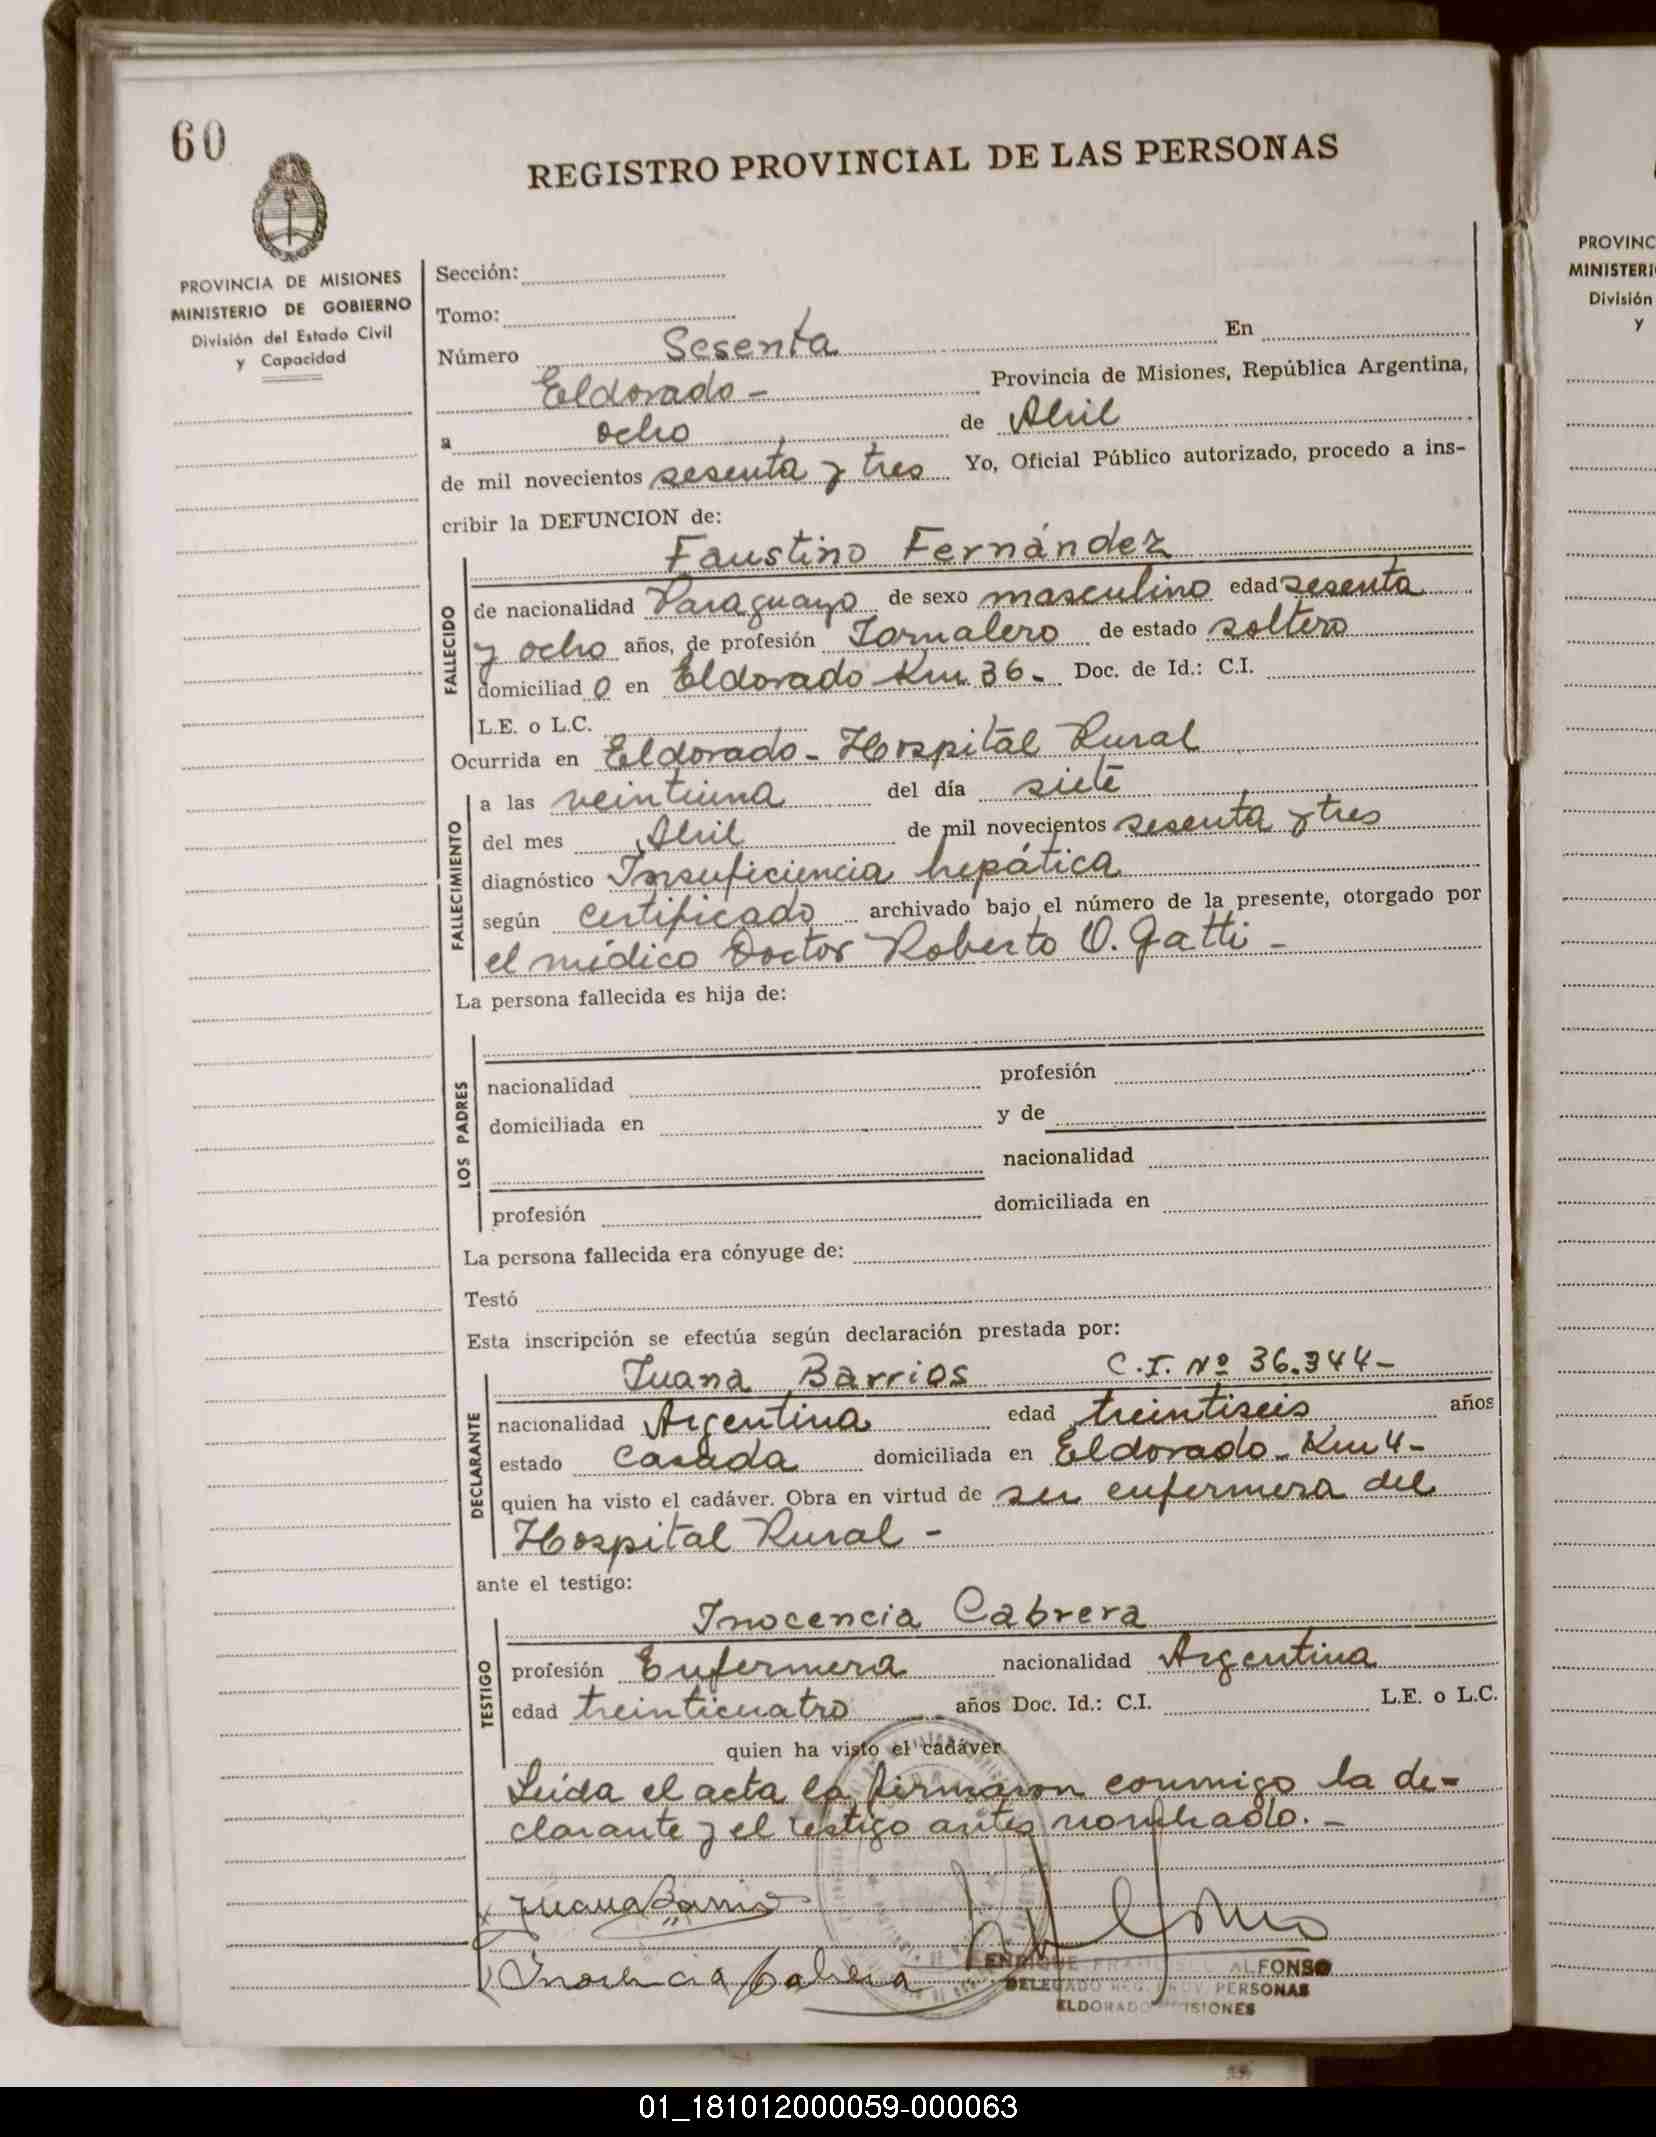 60
REGISTRO PROVINCIAL DE LAS PERSONAS
PROVINCIA DE MISIONES
MINISTERIO DE GOBIERNO
División del Estado Civil
y Capacidad
Sección:
Tomo:
Número Sesenta En
Eldorado - Provincia de Misiones, República Argentina,
a ocho de Abril
de mil novecientos sesenta y tres Yo, Oficial Público autorizado, procedo a ins-
cribir la DEFUNCION de:
FALLECIDO
Faustino Fernández
de nacionalidad Paraguayo de sexo masculino edad sesenta
y ocho años, de profesión Jornalero de estado soltero
domiciliad o en Eldorado Km 36 - Doc. de Id.: C.I.
L.E. o L.C.
Ocurrida en Eldorado - Hospital Rural
FALLECIMIENTO
a las veintiuna del día siete
del mes Abril de mil novecientos sesenta y tres
diagnóstico Insuficiencia hepática
según certificado archivado bajo el número de la presente, otorgado por
el médico Doctor Roberto O. Gatti -
La persona fallecida es hija de:
LOS PADRES
nacionalidad profesión
domiciliada en y de
nacionalidad
profesión domiciliada en
La persona fallecida era cónyuge de:
Testó
Esta inscripción se efectúa según declaración prestada por:
DECLARANTE
Juana Barrios C.I. Nº 36.344 -
nacionalidad Argentina edad treintiseis años
estado Casada domiciliada en Eldorado - Km 4 -
quien ha visto el cadáver. Obra en virtud de ser enfermera del
Hospital Rural -
ante el testigo:
TESTIGO
Inocencia Cabrera
profesión Enfermera nacionalidad Argentina
edad treinticuatro años Doc. Id.: C.I. L.E. o L.C.
quien ha visto el cadáver
Leída el acta la firmaron conmigo la de-
clarante y el testigo antes nombrado. -
Juana Barrios
Inocencia Cabrera
ENRIQUE FRANCISCO ALFONSO
DELEGADO REG. PROV. PERSONAS
ELDORADO MISIONES
PROVINC
MINISTERI
División
y
01_181012000059-000063